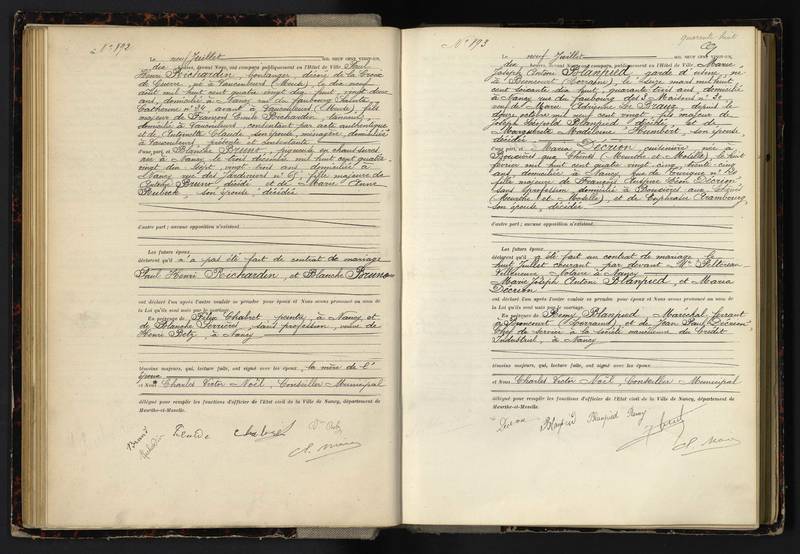 N° 892
Le neuf Juillet MIL NEUF CENT VINGT-UN,
dix heures, devant Nous, ont comparu publiquement en l'Hôtel de Ville Paul
Henri Richardin, boulanger, décoré de la Croix
de Guerre, né à Vaucouleurs (Meuse), le dix neuf
août mil huit cent quatre vingt dix huit, vingt deux
ans, domicilié à Nancy rue du faubourg Sainte
Catherine n° avant à Vaucouleurs (Meuse), fils
majeur de François Emile Richardin,
domicilié à Vaucouleurs, consentant par acte authentique
et de son épouse, ménagère, domiciliée
à Vaucouleurs, présente et consentante
d'une part, et Blanche Bruno, piqueuse en chaussures,
née à Nancy le trois décembre mil huit cent quatre
vingt dix sept, vingt trois ans, domiciliée à
Nancy rue des Jardiniers n° fille majeure de
Bruno décédé et de Marie Anne
son épouse décédée
d'autre part ; aucune opposition n'existant
Les futurs époux
déclarent qu'il n'a pas été fait de contrat de mariage
Paul Henri Richardin, et Blanche Bruno
ont déclaré l'un après l'autre vouloir se prendre pour époux et Nous avons prononcé au nom de
la Loi qu'ils sont unis par le mariage.
En présence de Félix Chabret, peintre, à Nancy, et
de Blanche sans profession, veuve de
Henri à Nancy
témoins majeurs, qui, lecture faite, ont signé avec les époux, la mère de l'
époux
et Nous Charles Victor Noël, Conseiller Municipal
délégué pour remplir les fonctions d'officier de l'État civil de la Ville de Nancy, département de
Meurthe-et-Moselle.
Bruno
Richardin
quarante huit
N° 893
Le neuf Juillet MIL NEUF CENT VINGT-UN,
dix heures, devant Nous, ont comparu publiquement en l'Hôtel de Ville Marie
Joseph Antoine Blanpied, garde d'usine, né
à (Lorraine), le seize mars mil huit
cent soixante dix huit, quarante trois ans, domicilié
à Nancy rue du faubourg des 3 Maisons n°
veuf de Marie depuis le
douze octobre mil neuf cent vingt, fils majeur de
Joseph Blanpied décédé, et de
Marguerite Madeleine Humbert, son épouse,
décédée
d'une part, et Maria Décrion, cuisinière, née à
Bouxières aux Chênes (Meurthe et Moselle), le huit
février mil huit cent quatre vingt cinq, trente six
ans, domiciliée à Nancy, rue de n°
fille majeure de François Décrion
sans profession, domicilié à Bouxières aux Chênes
(Meurthe et Moselle), et de Euphrasie
son épouse, décédée
d'autre part ; aucune opposition n'existant
Les futurs époux
déclarent qu'il a été fait un contrat de mariage le
huit Juillet courant par devant Me
Notaire à Nancy
Marie Joseph Antoine Blanpied, et Maria
Décrion
ont déclaré l'un après l'autre vouloir se prendre pour époux et Nous avons prononcé au nom de
la Loi qu'ils sont unis par le mariage.
En présence de Rémy Blanpied, Maréchal ferrant
à (Lorraine), et de Jean Paul Décrion
Chef de service à la société nancéienne du Crédit
Industriel, à Nancy
témoins majeurs, qui, lecture faite, ont signé avec les époux
et Nous Charles Victor Noël, Conseiller Municipal
délégué pour remplir les fonctions d'officier de l'État civil de la Ville de Nancy, département de
Meurthe-et-Moselle.
Blanpied Blanpied Remy